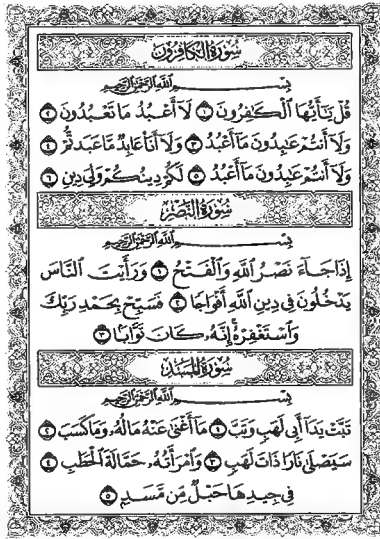 سُورَةُ الكَافِرُونَ
بِسْمِ اللَّهِ الرَّحْمَٰنِ الرَّحِيمِ
قُلْ يَٰٓأَيُّهَا ٱلْكَٰفِرُونَ ١ لَآ أَعْبُدُ مَا تَعْبُدُونَ ٢
وَلَآ أَنتُمْ عَٰبِدُونَ مَآ أَعْبُدُ ٣ وَلَآ أَنَا۠ عَابِدٌ مَّا عَبَدتُّمْ ٤
وَلَآ أَنتُمْ عَٰبِدُونَ مَآ أَعْبُدُ ٥ لَكُمْ دِينُكُمْ وَلِىَ دِينِ ٦
سُورَةُ النَّصْرِ
بِسْمِ اللَّهِ الرَّحْمَٰنِ الرَّحِيمِ
إِذَا جَآءَ نَصْرُ ٱللَّهِ وَٱلْفَتْحُ ١ وَرَأَيْتَ ٱلنَّاسَ
يَدْخُلُونَ فِى دِينِ ٱللَّهِ أَفْوَاجًا ٢ فَسَبِّحْ بِحَمْدِ رَبِّكَ
وَٱسْتَغْفِرْهُ إِنَّهُۥ كَانَ تَوَّابًۢا ٣
سُورَةُ المَسَدِ
بِسْمِ اللَّهِ الرَّحْمَٰنِ الرَّحِيمِ
تَبَّتْ يَدَآ أَبِى لَهَبٍ وَتَبَّ ١ مَآ أَغْنَىٰ عَنْهُ مَالُهُۥ وَمَا كَسَبَ ٢
سَيَصْلَىٰ نَارًا ذَاتَ لَهَبٍ ٣ وَٱمْرَأَتُهُۥ حَمَّالَةَ ٱلْحَطَبِ ٤
فِى جِيدِهَا حَبْلٌ مِّن مَّسَدٍۭ ٥